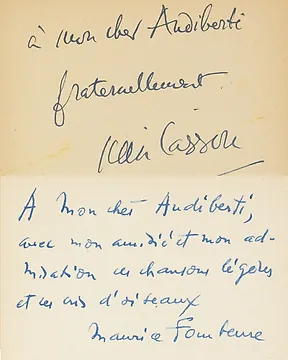 à mon cher Audiberti
fraternellement
Jean Cassou
A Mon cher Audiberti,
avec mon amitié et mon ad-
miration ces chansons légères
et ces cris d'oiseaux
Maurice Fombeure